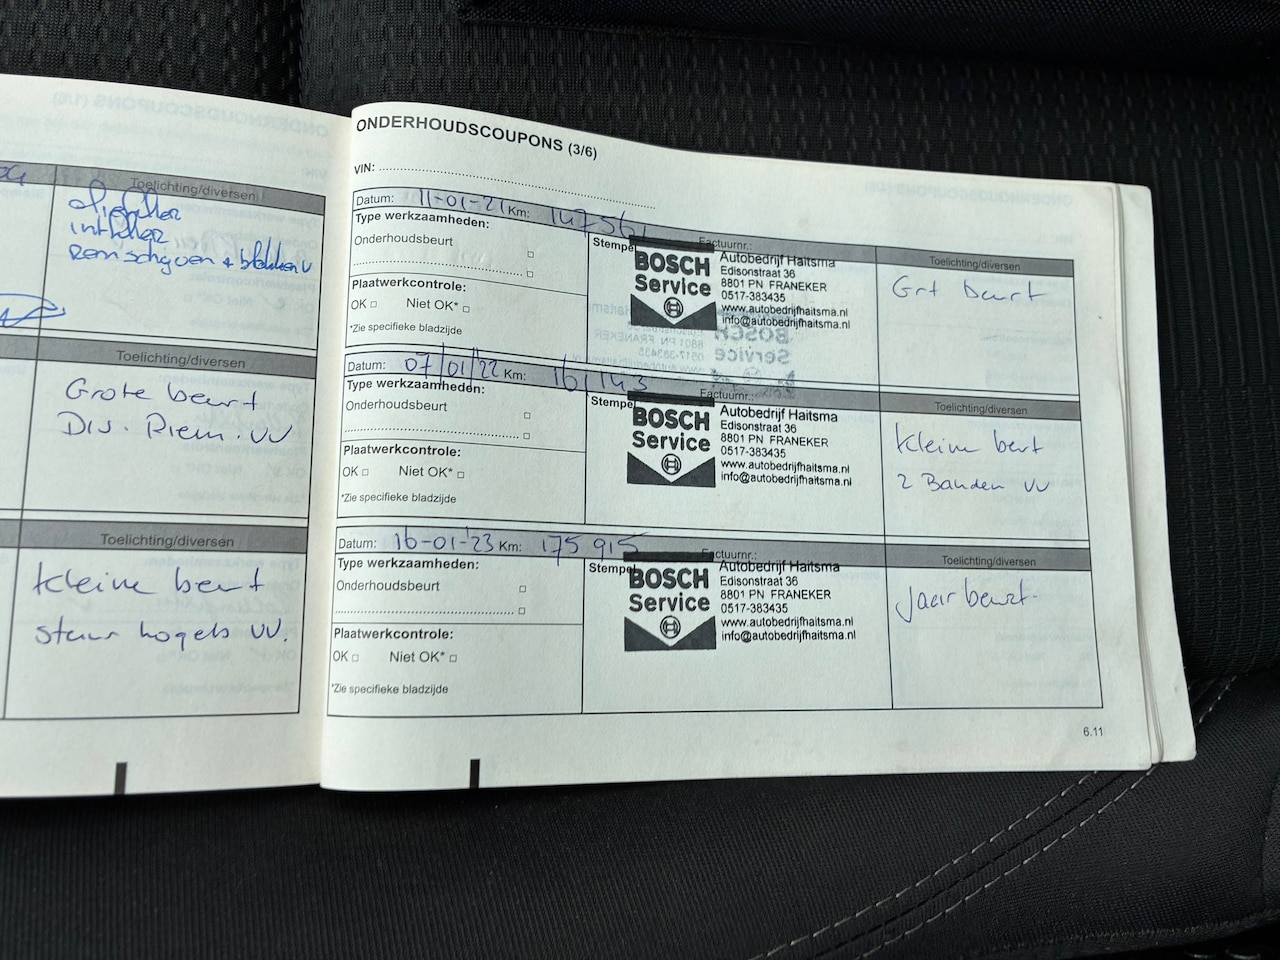 Toelichting/diversen
oliefilter
intfilter
Remschijven + blokken V
Toelichting/diversen
Grote beurt
Dis. Riem. VV
Toelichting/diversen
kleine beurt
stuur kogels VV.
ONDERHOUDSCOUPONS (3/6)
VIN:
Datum: 11-01-21 Km: 147561
Type werkzaamheden:
Onderhoudsbeurt
Plaatwerkcontrole:
OK □ Niet OK* □
*Zie specifieke bladzijde
Stempel
Factuurnr.:
BOSCH
Service
Autobedrijf Haitsma
Edisonstraat 36
8801 PN FRANEKER
0517-383435
www.autobedrijfhaitsma.nl
info@autobedrijfhaitsma.nl
Toelichting/diversen
Grt beurt
Datum: 07/01/22 Km: 161143
Type werkzaamheden:
Onderhoudsbeurt
Plaatwerkcontrole:
OK □ Niet OK* □
*Zie specifieke bladzijde
Stempel
Factuurnr.:
BOSCH
Service
Autobedrijf Haitsma
Edisonstraat 36
8801 PN FRANEKER
0517-383435
www.autobedrijfhaitsma.nl
info@autobedrijfhaitsma.nl
Toelichting/diversen
kleine beurt
2 Banden VV
Datum: 16-01-'23 Km: 175915
Type werkzaamheden:
Onderhoudsbeurt
Plaatwerkcontrole:
OK □ Niet OK* □
*Zie specifieke bladzijde
Stempel
Factuurnr.:
BOSCH
Service
Autobedrijf Haitsma
Edisonstraat 36
8801 PN FRANEKER
0517-383435
www.autobedrijfhaitsma.nl
info@autobedrijfhaitsma.nl
Toelichting/diversen
Jaarbeurt
6.11